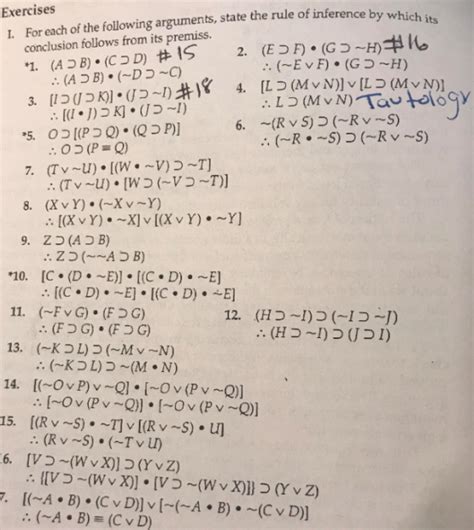 Exercises
I. For each of the following arguments, state the rule of inference by which its
conclusion follows from its premiss.
*1. (A ⊃ B) • (C ⊃ D) #15
∴ (A ⊃ B) • (~D ⊃ ~C)
2. (E ⊃ F) • (G ⊃ ~H) #16
∴ (~E ∨ F) • (G ⊃ ~H)
3. [I ⊃ (J ⊃ K)] • (J ⊃ ~I) #18
∴ [(I • J) ⊃ K] • (J ⊃ ~I)
4. [L ⊃ (M ∨ N)] ∨ [L ⊃ (M ∨ N)]
∴ L ⊃ (M ∨ N) Tautology
*5. O ⊃ [(P ⊃ Q) • (Q ⊃ P)]
∴ O ⊃ (P ≡ Q)
6. ~(R ∨ S) ⊃ (~R ∨ ~S)
∴ (~R • ~S) ⊃ (~R ∨ ~S)
7. (T ∨ ~U) • [(W • ~V) ⊃ ~T]
∴ (T ∨ ~U) • [W ⊃ (~V ⊃ ~T)]
8. (X ∨ Y) • (~X ∨ ~Y)
∴ [(X ∨ Y) • ~X] ∨ [(X ∨ Y) • ~Y]
9. Z ⊃ (A ⊃ B)
∴ Z ⊃ (~~A ⊃ B)
*10. [C • (D • ~E)] • [(C • D) • ~E]
∴ [(C • D) • ~E] • [(C • D) • ~E]
11. (~F ∨ G) • (F ⊃ G)
∴ (F ⊃ G) • (F ⊃ G)
12. (H ⊃ ~I) ⊃ (~I ⊃ ~J)
∴ (H ⊃ ~I) ⊃ (J ⊃ I)
13. (~K ⊃ L) ⊃ (~M ∨ ~N)
∴ (~K ⊃ L) ⊃ ~(M • N)
14. [(~O ∨ P) ∨ ~Q] • [~O ∨ (P ∨ ~Q)]
∴ [~O ∨ (P ∨ ~Q)] • [~O ∨ (P ∨ ~Q)]
15. [(R ∨ ~S) • ~T] ∨ [(R ∨ ~S) • U]
∴ (R ∨ ~S) • (~T ∨ U)
6. [V ⊃ ~(W ∨ X)] ⊃ (Y ∨ Z)
∴ {[V ⊃ ~(W ∨ X)] • [V ⊃ ~(W ∨ X)]} ⊃ (Y ∨ Z)
7. [(~A • B) • (C ∨ D)] ∨ [~(~A • B) • ~(C ∨ D)]
∴ (~A • B) ≡ (C ∨ D)